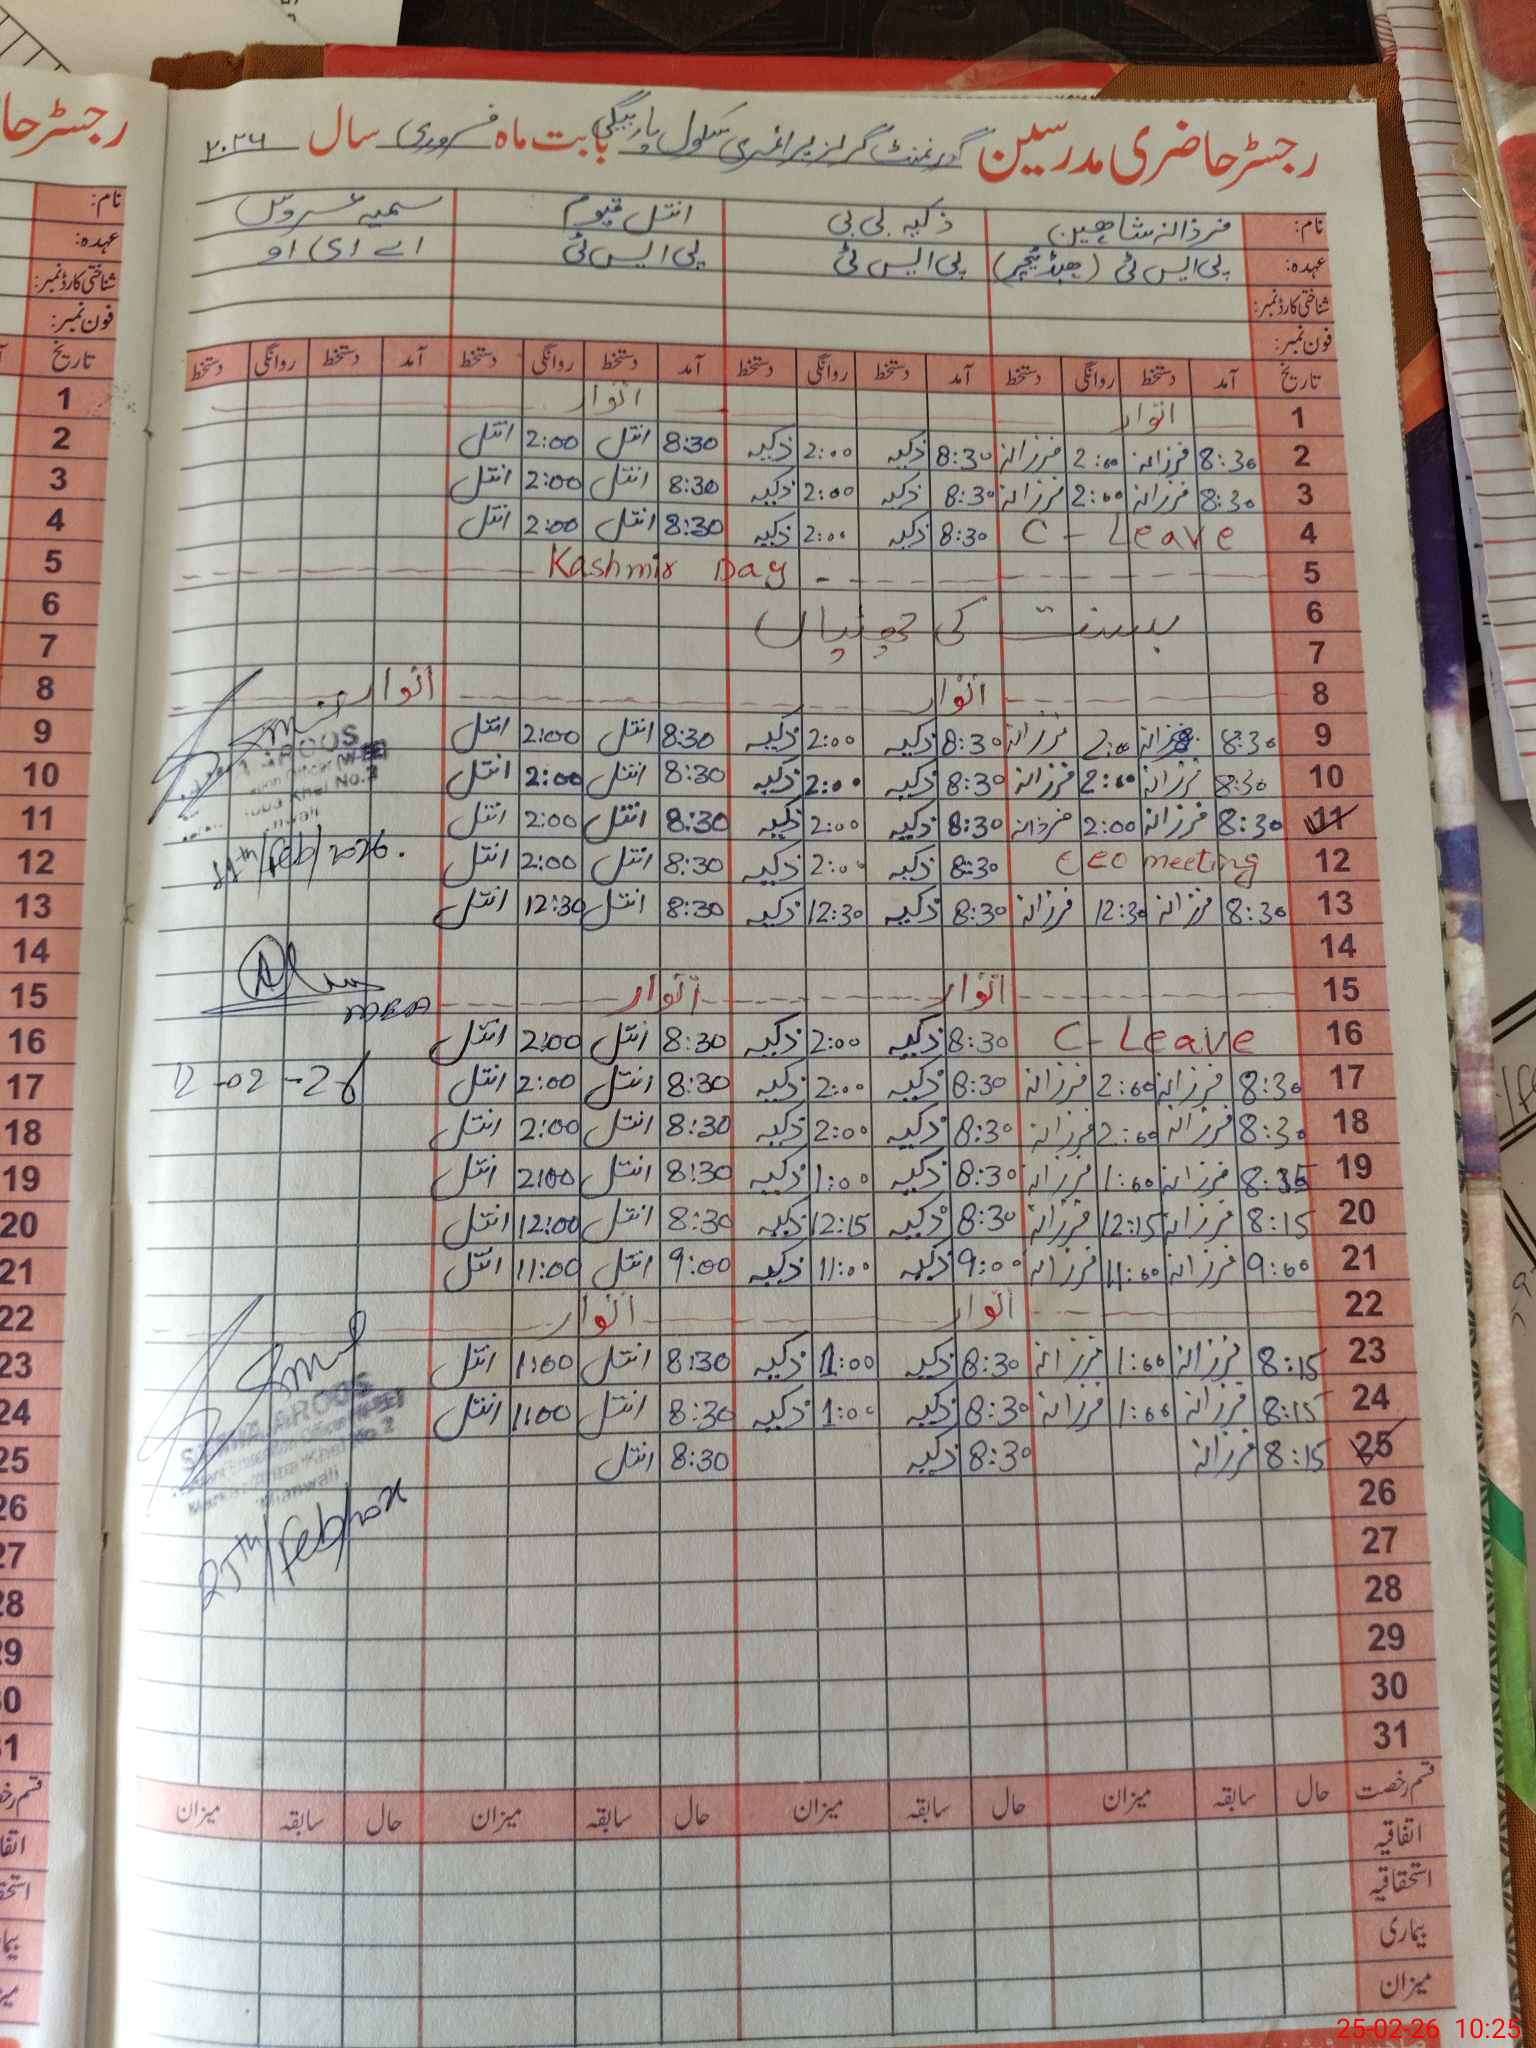 رجسٹر حاضری مدرسین گورنمنٹ گرلز پرائمری سکول بابت ماہ فروری سال ۲۰۲۶
نام: فرزانہ شاہین ذکیہ بی بی انتل قیوم سمیہ عروس
عہدہ: پی ایس ٹی (ہیڈ ٹیچر) پی ایس ٹی پی ایس ٹی اے ای او
شناختی کارڈ نمبر:
فون نمبر:
تاریخ آمد دستخط روانگی دستخط آمد دستخط روانگی دستخط آمد دستخط روانگی دستخط آمد دستخط روانگی دستخط
1 اتوار اتوار
2 8:30 فرزانہ 2:00 فرزانہ 8:30 ذکیہ 2:00 ذکیہ 8:30 انتل 2:00 انتل
3 8:30 فرزانہ 2:00 فرزانہ 8:30 ذکیہ 2:00 ذکیہ 8:30 انتل 2:00 انتل
4 C - Leave 8:30 ذکیہ 2:00 ذکیہ 8:30 انتل 2:00 انتل
5 Kashmir Day
6 بسنت کی چھٹیاں
7
8 اتوار اتوار
9 8:30 فرزانہ 2:00 فرزانہ 8:30 ذکیہ 2:00 ذکیہ 8:30 انتل 2:00 انتل
10 8:30 فرزانہ 2:00 فرزانہ 8:30 ذکیہ 2:00 ذکیہ 8:30 انتل 2:00 انتل
11 8:30 فرزانہ 2:00 فرزانہ 8:30 ذکیہ 2:00 ذکیہ 8:30 انتل 2:00 انتل
12 CEO meeting 8:30 ذکیہ 2:00 ذکیہ 8:30 انتل 2:00 انتل 11th/Feb/2026.
13 8:30 فرزانہ 12:30 فرزانہ 8:30 ذکیہ 12:30 ذکیہ 8:30 انتل 12:30 انتل
14
15 اتوار اتوار MEA
16 C - Leave 8:30 ذکیہ 2:00 ذکیہ 8:30 انتل 2:00 انتل
17 8:30 فرزانہ 2:00 فرزانہ 8:30 ذکیہ 2:00 ذکیہ 8:30 انتل 2:00 انتل 12-02-26
18 8:30 فرزانہ 2:00 فرزانہ 8:30 ذکیہ 2:00 ذکیہ 8:30 انتل 2:00 انتل
19 8:35 فرزانہ 1:00 فرزانہ 8:30 ذکیہ 1:00 ذکیہ 8:30 انتل 2:00 انتل
20 8:15 فرزانہ 12:15 فرزانہ 8:30 ذکیہ 12:15 ذکیہ 8:30 انتل 12:00 انتل
21 9:00 فرزانہ 11:00 فرزانہ 9:00 ذکیہ 11:00 ذکیہ 9:00 انتل 11:00 انتل
22 اتوار اتوار
23 8:15 فرزانہ 1:00 فرزانہ 8:30 ذکیہ 1:00 ذکیہ 8:30 انتل 1:00 انتل
24 8:15 فرزانہ 1:00 فرزانہ 8:30 ذکیہ 1:00 ذکیہ 8:30 انتل 1:00 انتل
25 8:15 فرزانہ 8:30 ذکیہ 8:30 انتل
26
27 25th/Feb/
28
29
30
31
قسم رخصت حال سابقہ میزان حال سابقہ میزان حال سابقہ میزان حال سابقہ میزان
اتفاقیہ
استحقاقیہ
بیماری
میزان
25-02-26 10:25